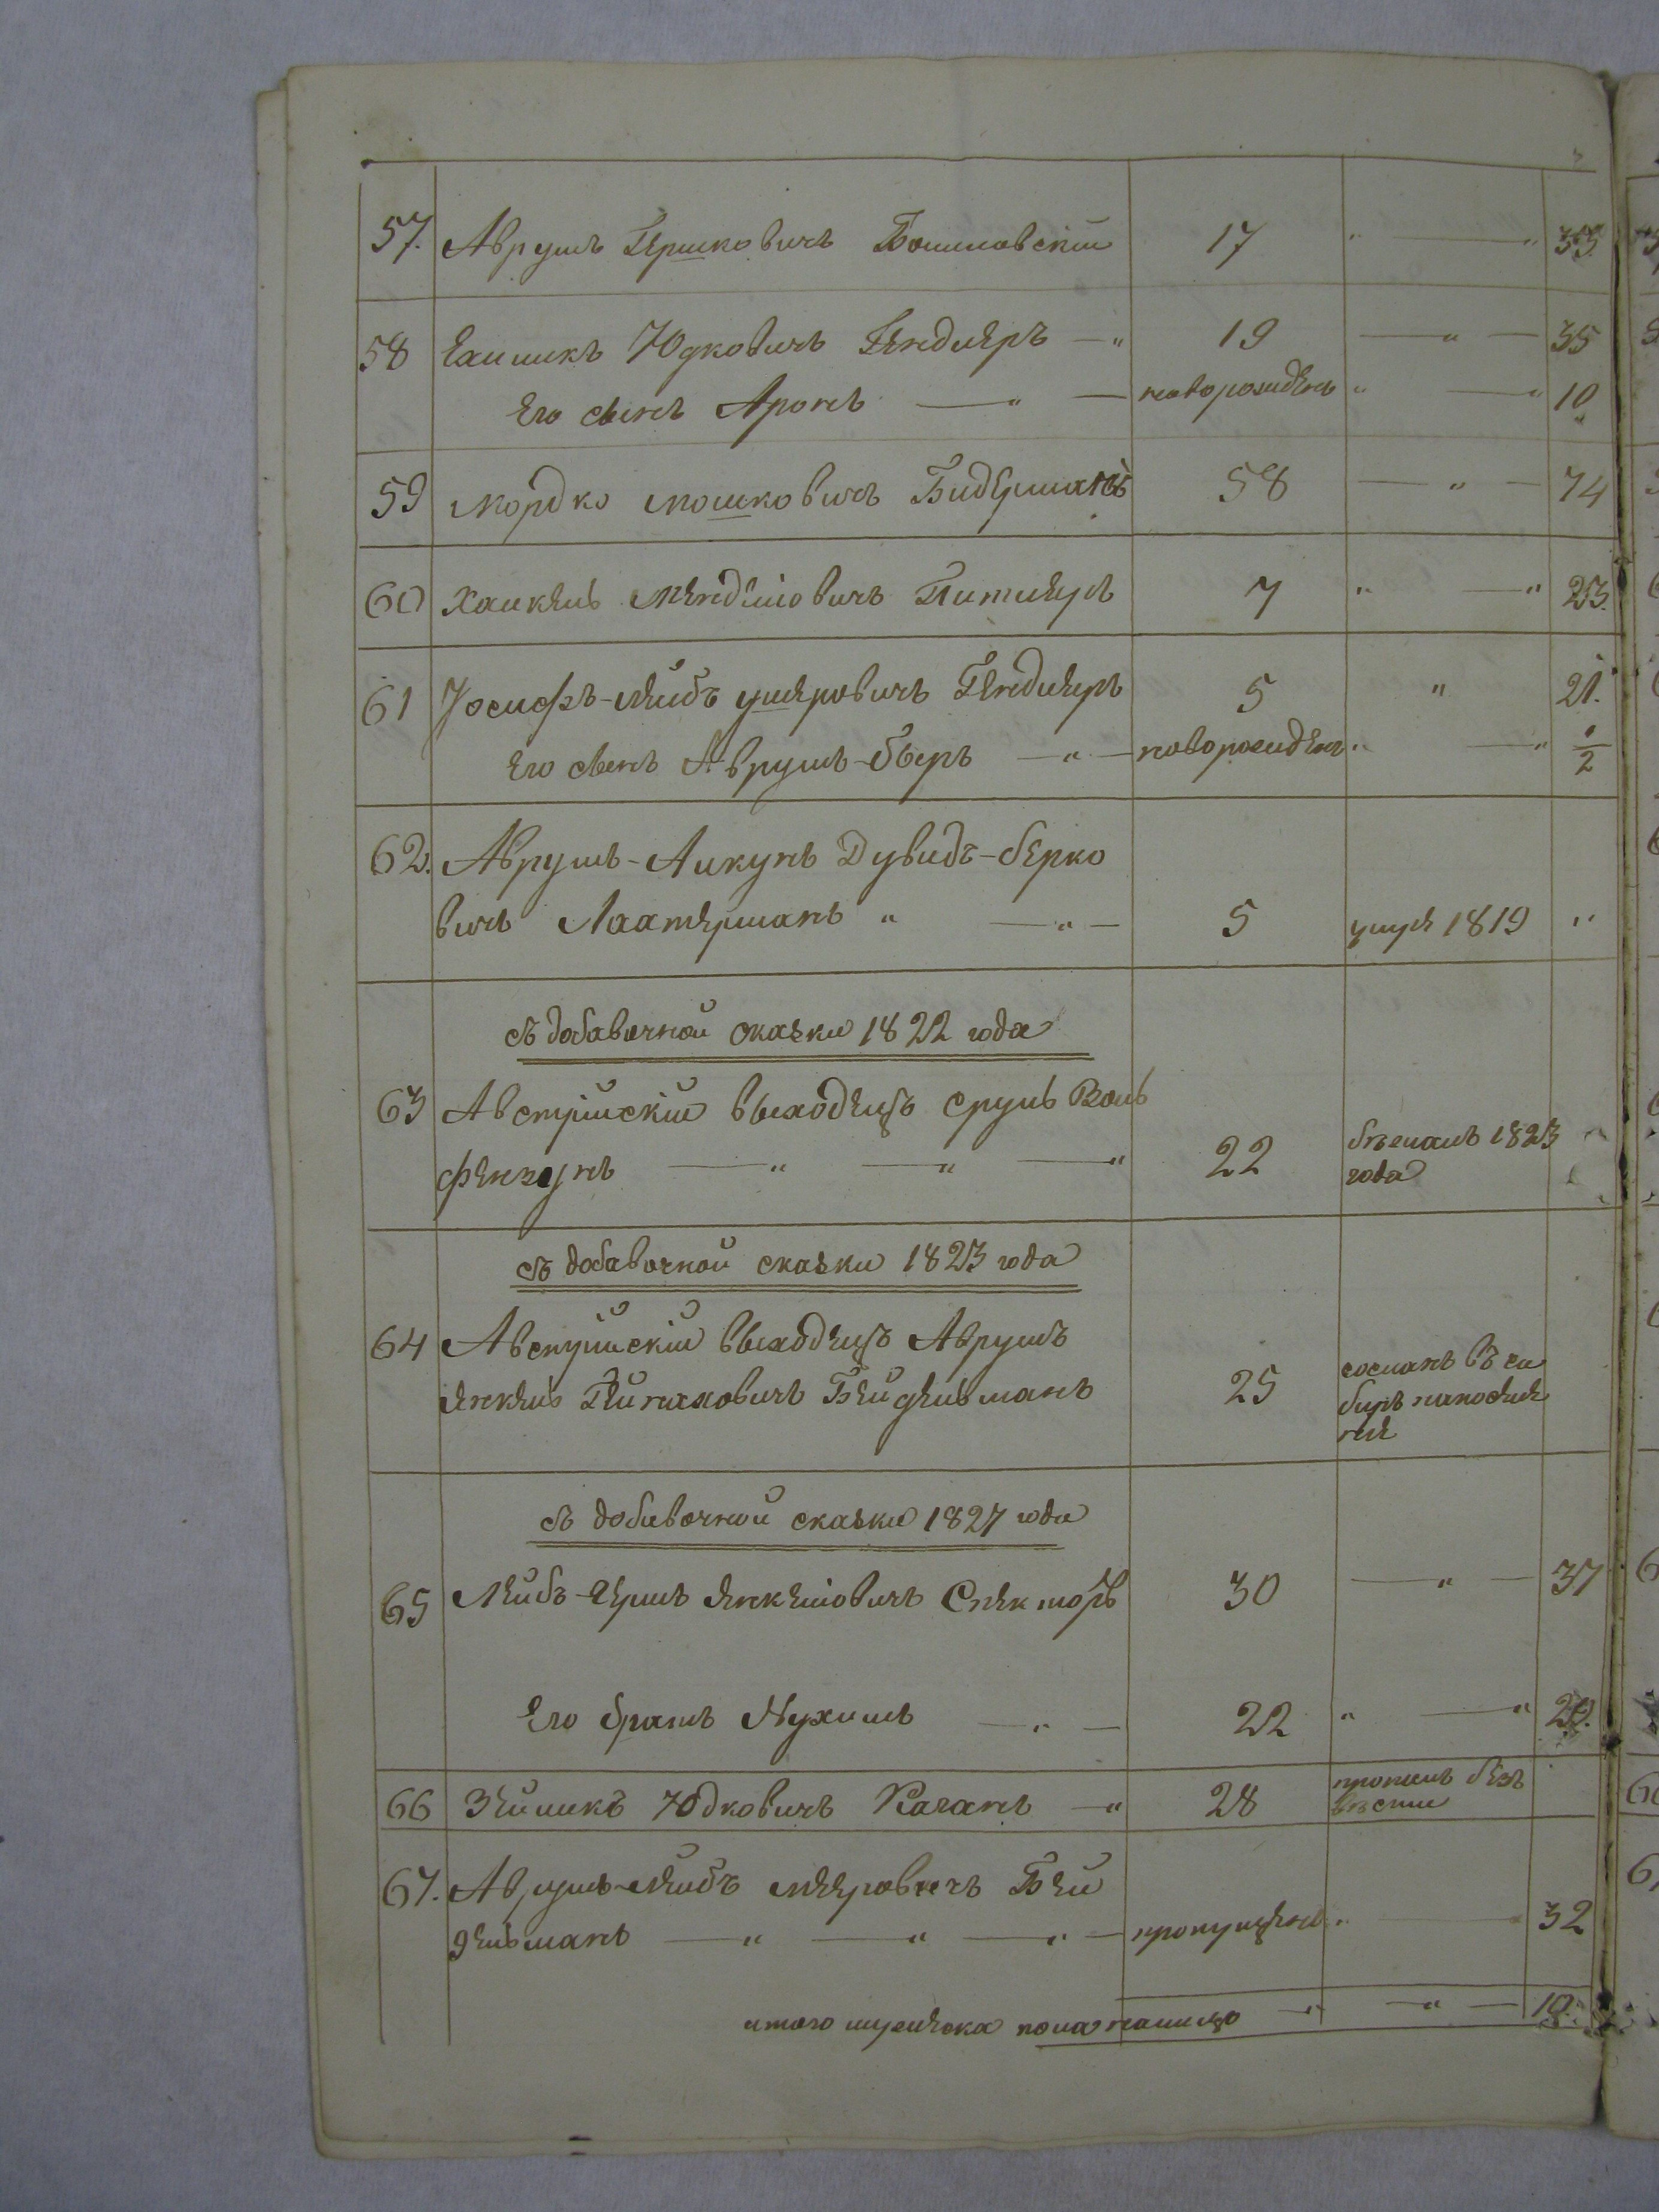 57. Аврумъ Гершковичъ Бошковскій 17 " — " 33.
58 Хаимикъ Юдковичъ Гендлеръ — " 19 — " — 35
Его сынъ Аронъ — " — новорожденъ " — " 10
59 Мордко Мошковичъ Бидерманъ 58 — " — 74
60 Хаикель Менделіовичъ Питлеръ 7 " — " 23.
61 Іосифъ-Лейбъ ушеровичъ Гендлеръ 5 " 21.
Его сынъ Аврумъ-беръ — " — новорожденъ " — " 1/2
62. Аврумъ-Анкунъ Дувидъ-берко
вичъ Латерманъ " — " — 5 умре 1819 "
съ добавочной сказки 1822 года
63 Австрійскій выходецъ срулъ Воль
фензунъ — " — " — " 22 бежалъ 1823
года
съ добавочной сказки 1823 года
64 Австрійскій выходецъ Аврумъ
Янкель Пинхасовичъ Бейдельманъ 25 сосланъ въ си
бирь на поселе
ніе
съ добавочной сказки 1827 года
65 Лейбъ-Гершъ Янкеліовичъ Спекторъ 30 — " — 37
Его братъ Нухимъ — " — 22 " — " 29.
66 Зейликъ Юдковичъ Каганъ — " 28 пропалъ безъ
вѣсти
67. Аврумъ-Лейбъ Мееровичъ Бей
дельманъ — " — " — " — пропущенъ " — 32
итого мужеска пола налицо — " — " — 10.